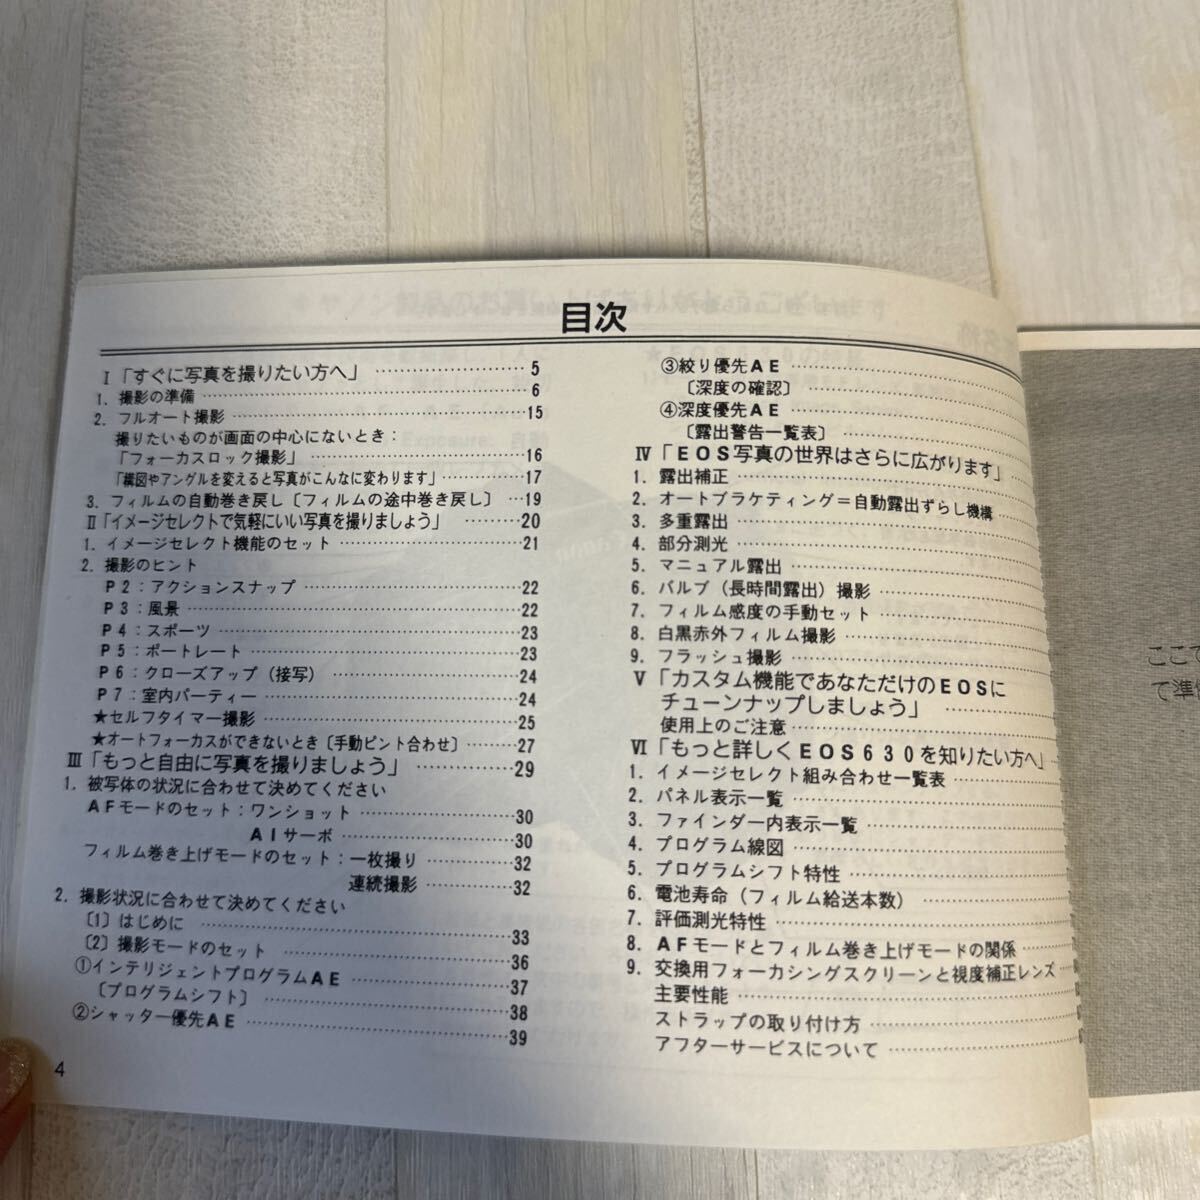 目次
Ⅰ「すぐに写真を撮りたい方へ」 …………………… 5
1. 撮影の準備 …………………… 6
2. フルオート撮影 …………………… 15
撮りたいものが画面の中心にないとき:
「フォーカスロック撮影」 …………………… 16
「構図やアングルを変えると写真がこんなに変わります」 ………… 17
3. フィルムの自動巻き戻し〔フィルムの途中巻き戻し〕 … 19
Ⅱ「イメージセレクトで気軽にいい写真を撮りましょう」 ……… 20
1. イメージセレクト機能のセット …………………… 21
2. 撮影のヒント
P2:アクションスナップ …………………… 22
P3:風景 …………………… 22
P4:スポーツ …………………… 23
P5:ポートレート …………………… 23
P6:クローズアップ(接写) …………………… 24
P7:室内パーティー …………………… 24
★セルフタイマー撮影 …………………… 25
★オートフォーカスができないとき〔手動ピント合わせ〕 ……… 27
Ⅲ「もっと自由に写真を撮りましょう」 …………… 29
1. 被写体の状況に合わせて決めてください
AFモードのセット:ワンショット …………………… 30
AIサーボ …………………… 30
フィルム巻き上げモードのセット:一枚撮り ………… 32
連続撮影 ………… 32
2. 撮影状況に合わせて決めてください
〔1〕はじめに …………………… 33
〔2〕撮影モードのセット …………………… 36
①インテリジェントプログラムAE …………………… 37
〔プログラムシフト〕 …………………… 38
②シャッター優先AE …………………… 39
4
③絞り優先AE ……………………
〔深度の確認〕 ……………………
④深度優先AE ……………………
〔露出警告一覧表〕 ……………………
Ⅳ「EOS写真の世界はさらに広がります」 …
1. 露出補正 ……………………
2. オートブラケティング=自動露出ずらし機構 …
3. 多重露出 ……………………
4. 部分測光 ……………………
5. マニュアル露出 ……………………
6. バルブ(長時間露出)撮影 ……………………
7. フィルム感度の手動セット ……………………
8. 白黒赤外フィルム撮影 ……………………
9. フラッシュ撮影 ……………………
Ⅴ「カスタム機能であなただけのEOSに
チューンナップしましょう」 …………
使用上のご注意 ……………………
Ⅵ「もっと詳しくEOS630を知りたい方へ」 …
1. イメージセレクト組み合わせ一覧表 …………
2. パネル表示一覧 ……………………
3. ファインダー内表示一覧 ……………………
4. プログラム線図 ……………………
5. プログラムシフト特性 ……………………
6. 電池寿命(フィルム給送本数) ……………………
7. 評価測光特性 ……………………
8. AFモードとフィルム巻き上げモードの関係 ……
9. 交換用フォーカシングスクリーンと視度補正レンズ …
主要性能 ……………………
ストラップの取り付け方 ……………………
アフターサービスについて ……………………
ここで
て準